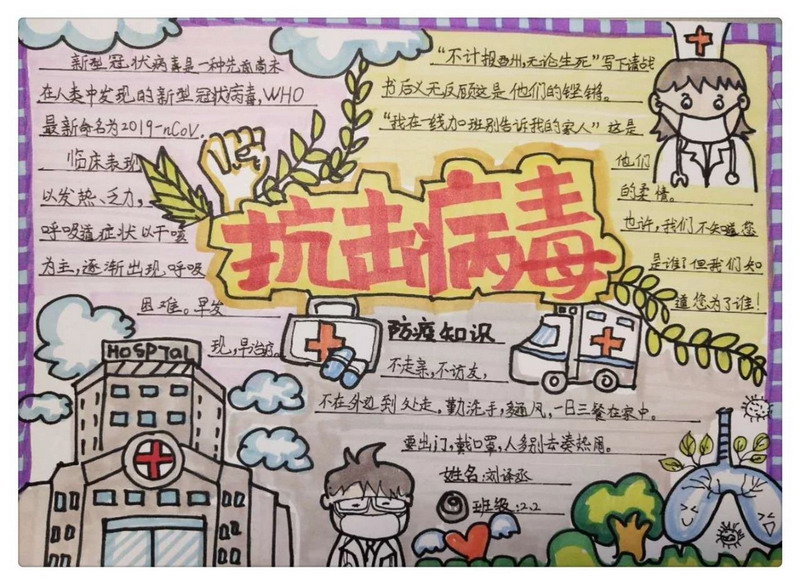 新型冠状病毒是一种先前尚未
在人类中发现的新型冠状病毒,WHO
最新命名为2019-nCoV.
临床表现
以发热、乏力,
呼吸道症状以干咳
为主,逐渐出现呼吸
困难。早发
现,早治疗。
"不计报酬,无论生死"写下请战
书后义无反顾这是他们的铿锵。
"我在一线加班别告诉我的家人"这是
他们
的柔情。
也许,我们不知道您
是谁?但我们知
道您为了谁!
抗击病毒
防疫知识
不走亲,不访友,
不在外边到处走,勤洗手,多通风,一日三餐在家中。
要出门,戴口罩,人多别去凑热闹。
姓名:刘译丞
班级:2.2
HOSPTal